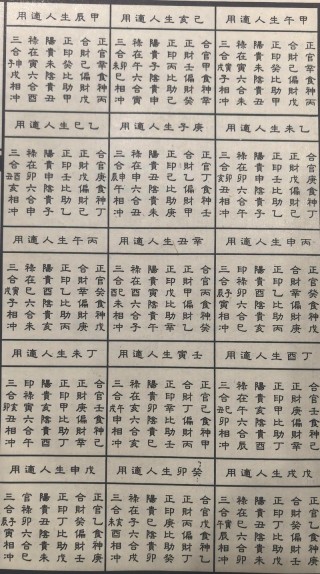 甲午生人適用
正官辛食神丙
合財己偏財戊
正印癸比助甲
陽貴未陰貴丑
祿在寅六合未
三合戌寅子相沖
己亥生人適用
合官甲食神辛
正財壬偏財癸
正印丙比助己
陽貴子陰貴申
祿在午六合寅
三合未卯巳相沖
甲辰生人適用
正官辛食神丙
合財己偏財戊
正印癸比助甲
陽貴未陰貴丑
祿在寅六合酉
三合子申戌相沖
乙未生人適用
合官庚食神丁
正財戊偏財己
正印壬比助乙
陽貴申陰貴子
祿在卯六合午
三合亥卯丑相沖
庚子生人適用
正官丁食神壬
合財乙偏財甲
正印己比助庚
陽貴丑陰貴未
祿在申六合丑
三合辰申午相沖
乙巳生人適用
合官庚食神丁
正財戊偏財己
正印壬比助乙
陽貴申陰貴子
祿在卯六合申
三合丑酉亥相沖
丙申生人適用
正官癸食神戊
合財辛偏財庚
正印乙比助丙
陽貴酉陰貴亥
祿在巳六合巳
三合辰子寅相沖
辛丑生人適用
合官丙食神癸
正財甲偏財乙
正印戊比助辛
陽貴寅陰貴午
祿在酉六合子
三合巳酉未相沖
丙午生人適用
正官癸食神戊
合財辛偏財庚
正印乙比助丙
陽貴酉陰貴亥
祿在巳六合未
三合戌寅子相沖
丁酉生人適用
合官壬食神己
正財庚偏財辛
正印甲比助丁
陽貴亥陰貴酉
祿在午六合辰
三合丑巳卯相沖
壬寅生人適用
正官己食神甲
合財丁偏財丙
正印辛比助壬
陽貴卯陰貴巳
祿在亥六合亥
三合戌午申相沖
丁未生人適用
合官壬食神己
正財庚偏財辛
正印甲比助丁
陽貴亥陰貴酉
三合卯亥丑相沖
戊戌生人適用
正官乙食神庚
合財癸偏財壬
正印丁比助戊
陽貴丑陰貴未
祿在巳六合卯
三合寅午辰相沖
癸卯生人適用
合官戊食神乙
正財丙偏財丁
正印庚比助癸
陽貴巳陰貴卯
祿在子六合戌
三合未亥酉相沖
戊申生人適用
正官乙食神庚
合財癸偏財壬
正印丁比助戊
陽貴丑陰貴未
三合辰子寅相沖